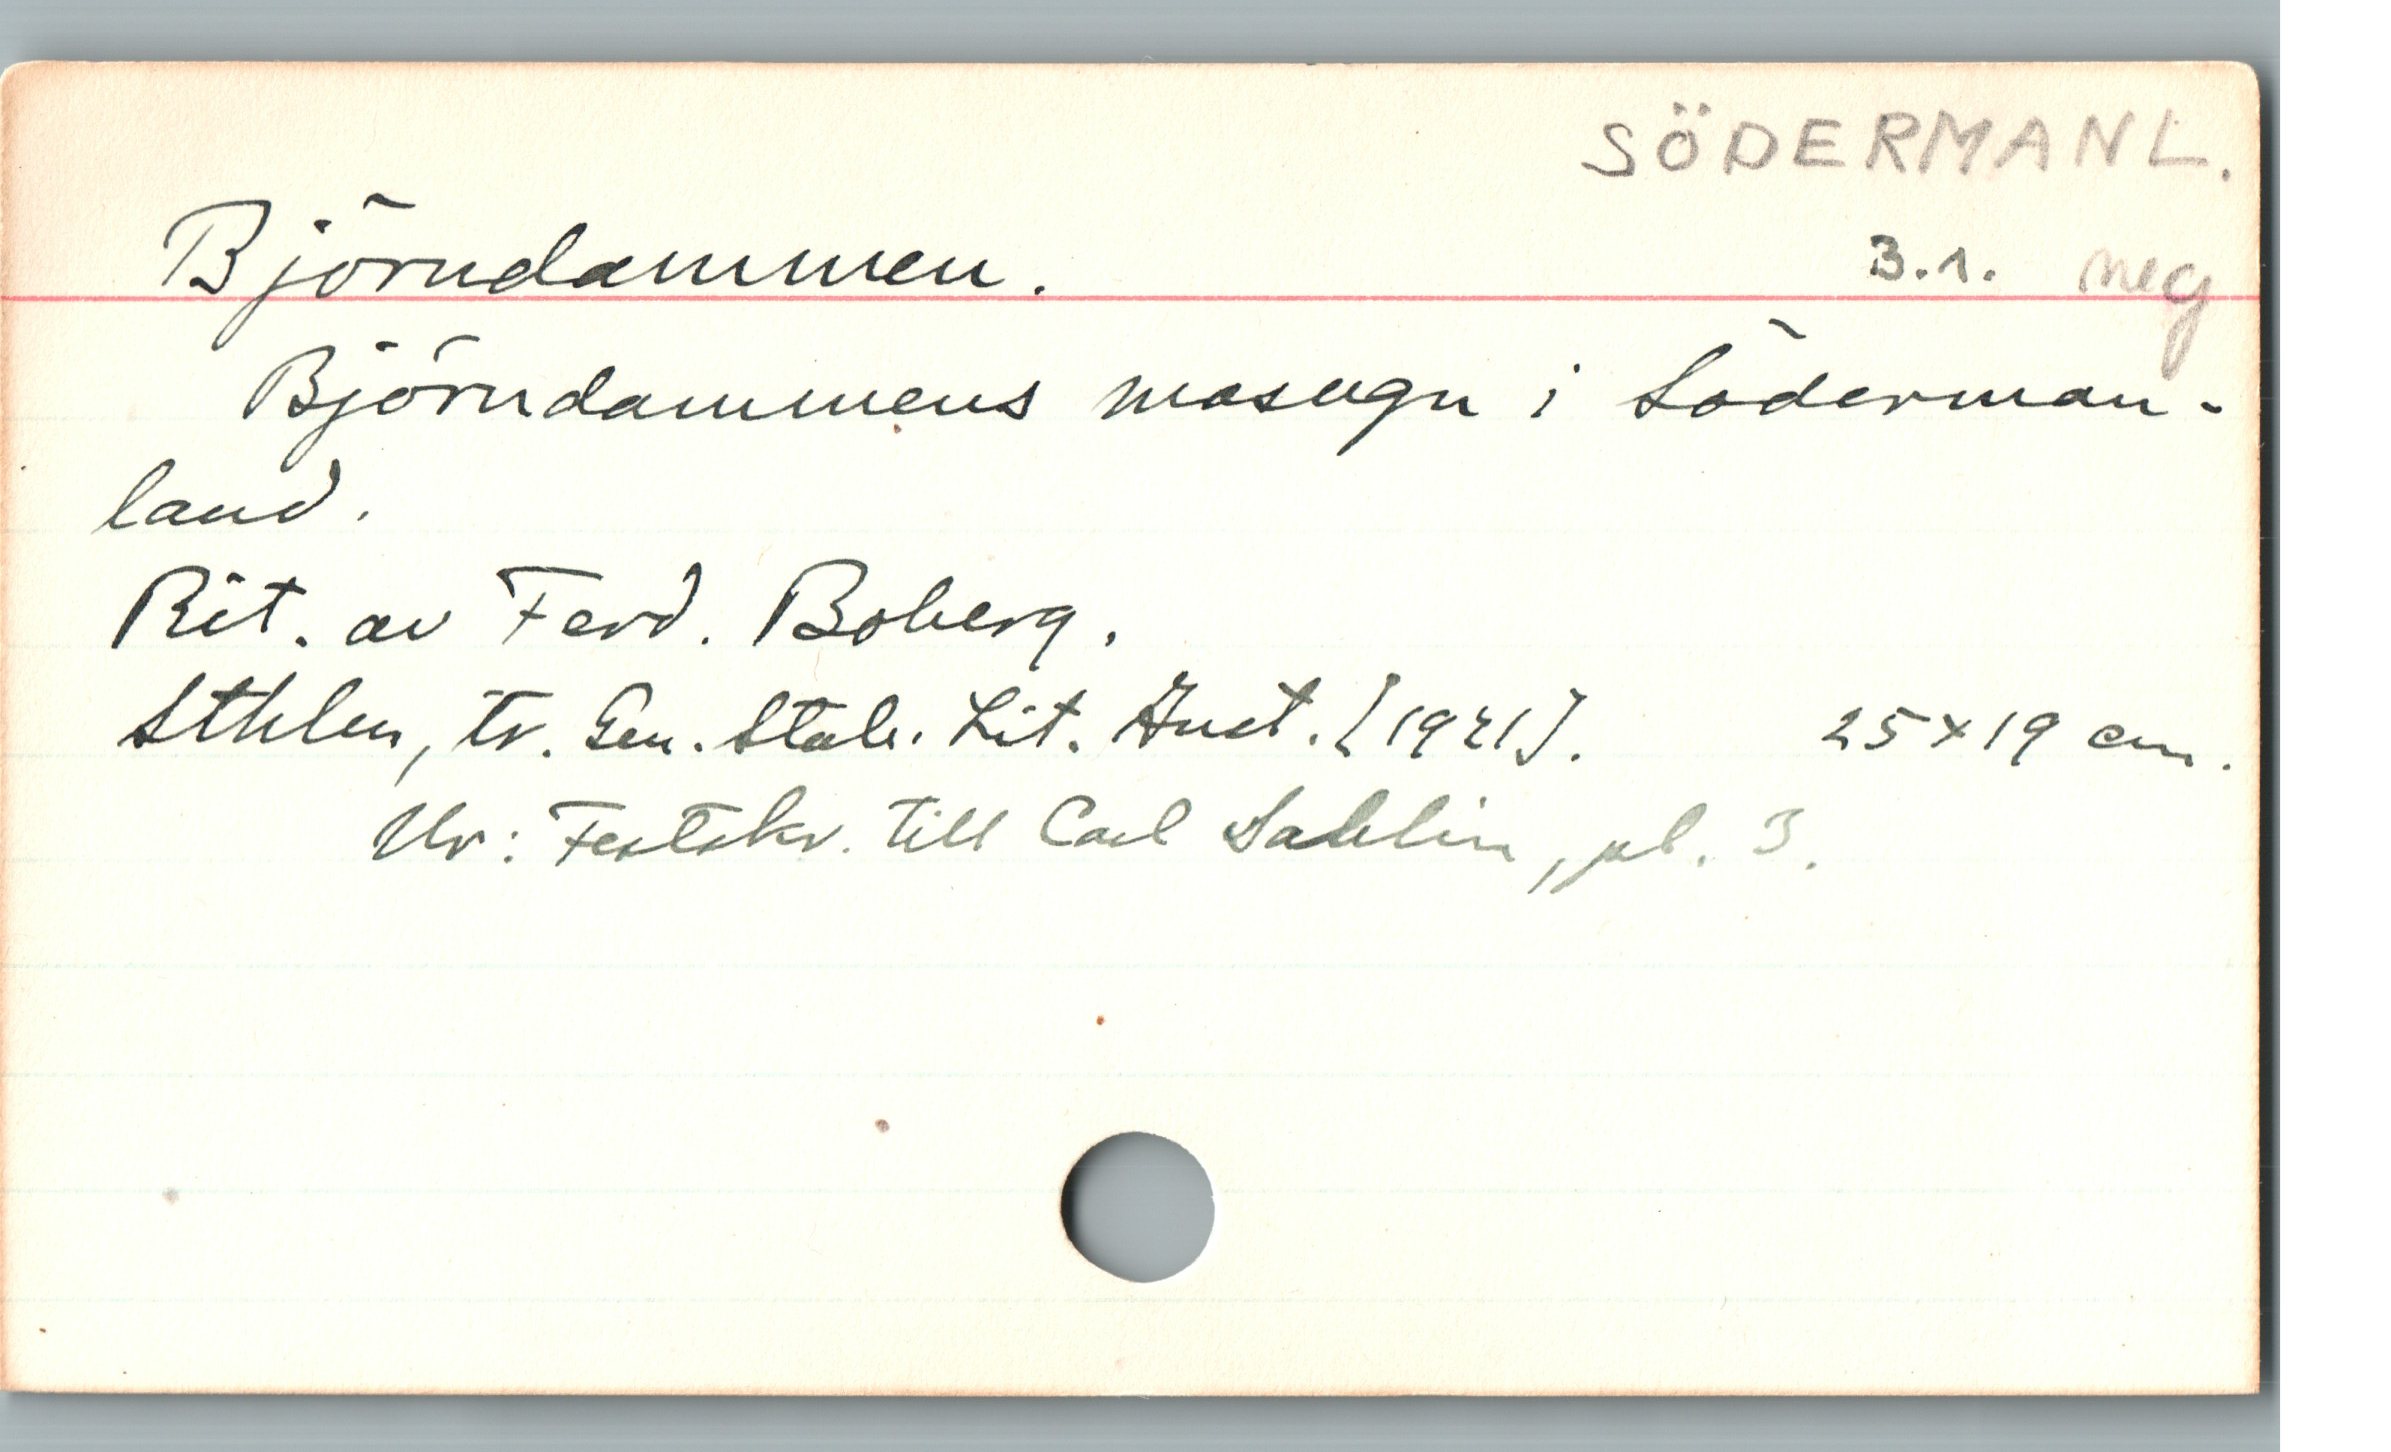 SÖDERMANL.
Björndammen. 3.1. neg
Björndammens masugn i Söderman-
land.
Rit. av Ferd. Boberg.
Sthlm, tr. Gen. Stab. Lit. Anst. [1921]. 25 x 19 cm.
Ur: Festskr. till Carl Sahlin, pl. 3.